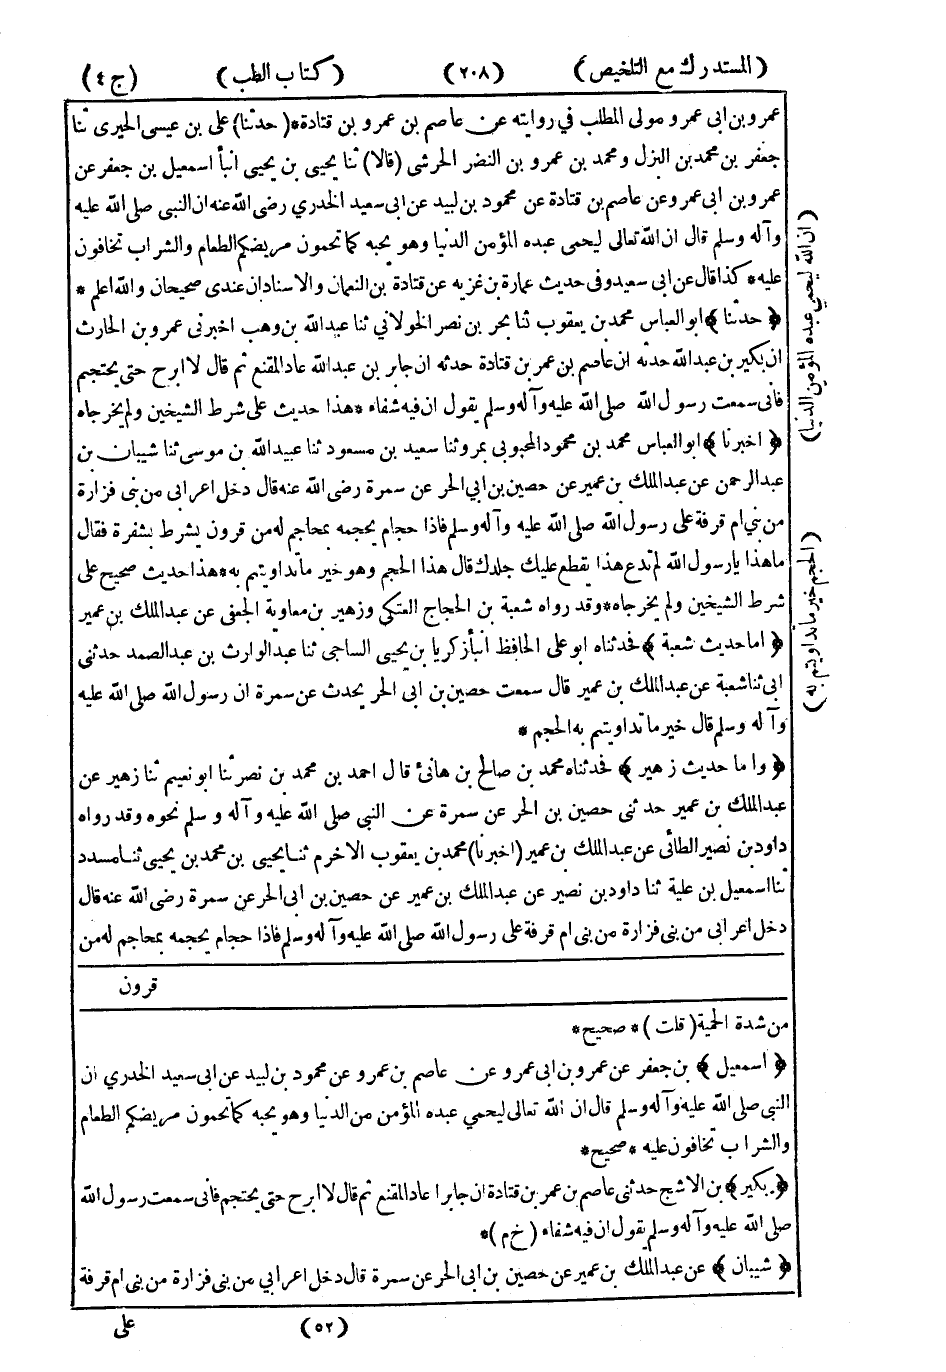 (المستدرك مع التلخيص) (٢٠٨) (كتاب الطب) (ج ٤)
عمرو بن ابى عمرو مولى المطلب في روايته عن عاصم بن عمرو بن قتادة*(حدثنا) على بن عيسى الحيرى ثنا
جعفر بن محمد بن البزل و محمد بن عمرو بن النضر الحرشى (قالا) ثنا يحيى بن يحيى انبأ اسمعيل بن جعفر عن
عمرو بن ابى عمرو عن عاصم بن قتادة عن محمود بن لبيد عن ابى سعيد الخدري رضى الله عنه ان النبى صلى الله عليه
وآله وسلم قال ان الله تعالى ليحمى عبده المؤمن الدنيا وهو يحبه كما تحمون مريضكم الطعام والشراب تخافون
عليه* كذا قال عن ابى سعيد وفى حديث عمارة بن غزيه عن قتادة بن النعمان والاسنادان عندى صحيحان والله اعلم *
﴿ حدثنا ﴾ ابو العباس محمد بن يعقوب ثنا بحر بن نصر الخولاني ثنا عبد الله بن وهب اخبرنى عمرو بن الحارث
ان بكير بن عبد الله حدثه ان عاصم بن عمر بن قتادة حدثه ان جابر بن عبد الله عاد المقنع ثم قال لا ابرح حتى يحتجم
فانى سمعت رسول الله صلى الله عليه وآله وسلم يقول ان فيه شفاء *هذا حديث على شرط الشيخين ولم يخرجاه
﴿ اخبرنا ﴾ ابو العباس محمد بن محمود المحبوبى بمرو ثنا سعيد بن مسعود ثنا عبيد الله بن موسى ثنا شيبان بن
عبد الرحمن عن عبد الملك بن عمير عن حصين بن ابي الحر عن سمرة رضى الله عنه قال دخل اعرابى من بنى فزارة
من بني ام قرفة على رسول الله صلى الله عليه وآله وسلم فاذا حجام يحجمه بمحاجم له من قرون يشرط بشفرة فقال
ما هذا يا رسول الله لم تدع هذا يقطع عليك جلدك قال هذا الحجم وهو خير ما تداويتم به*هذا حديث صحيح على
شرط الشيخين ولم يخرجاه*وقد رواه شعبة بن الحجاج العتكى وزهير بن معاوية الجعفى عن عبد الملك بن عمير
﴿ اما حديث شعبة ﴾ فحدثناه ابو على الحافظ انبأ زكريا بن يحيى الساجى ثنا عبد الوارث بن عبد الصمد حدثنى
ابى ثنا شعبة عن عبد الملك بن عمير قال سمعت حصين بن ابى الحر يحدث عن سمرة ان رسول الله صلى الله عليه
وآله وسلم قال خير ما تداويتم به الحجم *
﴿ واما حديث زهير ﴾ فحدثناه محمد بن صالح بن هانئ قال احمد بن محمد بن نصر ثنا ابو نعيم ثنا زهير عن
عبد الملك بن عمير حدثنى حصين بن الحر عن سمرة عن النبي صلى الله عليه وآله وسلم نحوه وقد رواه
داود بن نصير الطائى عن عبد الملك بن عمير (اخبرنا) محمد بن يعقوب الاخرم ثنا يحيى بن محمد بن يحيى ثنا مسدد
ثنا اسمعيل بن علية ثنا داود بن نصير عن عبد الملك بن عمير عن حصين بن ابى الحر عن سمرة رضى الله عنه قال
دخل اعرابى من بنى فزارة من بنى ام قرفة على رسول الله صلى الله عليه وآله وسلم فاذا حجام يحجمه بمحاجم له من
قرون
(ان الله ليحمي عبده المؤمن الدنيا)
(الحجم خير ما تداويتم به)
من شدة الحمية (قلت) * صحيح*
﴿ اسمعيل ﴾ بن جعفر عن عمرو بن ابى عمرو عن عاصم بن عمرو عن محمود بن لبيد عن ابى سعيد الخدري ان
النبى صلى الله عليه وآله وسلم قال ان الله تعالى ليحمي عبده المؤمن من الدنيا وهو يحبه كما تحمون مريضكم الطعام
والشراب تخافون عليه *صحيح*
﴿بكير﴾ بن الاشج حدثنى عاصم بن عمر بن قتادة ان جابرا عاد المقنع ثم قال لا ابرح حتى يحتجم فانى سمعت رسول الله
صلى الله عليه وآله وسلم يقول ان فيه شفاء (خ م)*
﴿ شيبان ﴾ عن عبد الملك بن عمير عن حصين بن ابى الحر عن سمرة قال دخل اعرابي من بنى فزارة من بنى ام قرفة
(٥٢) على